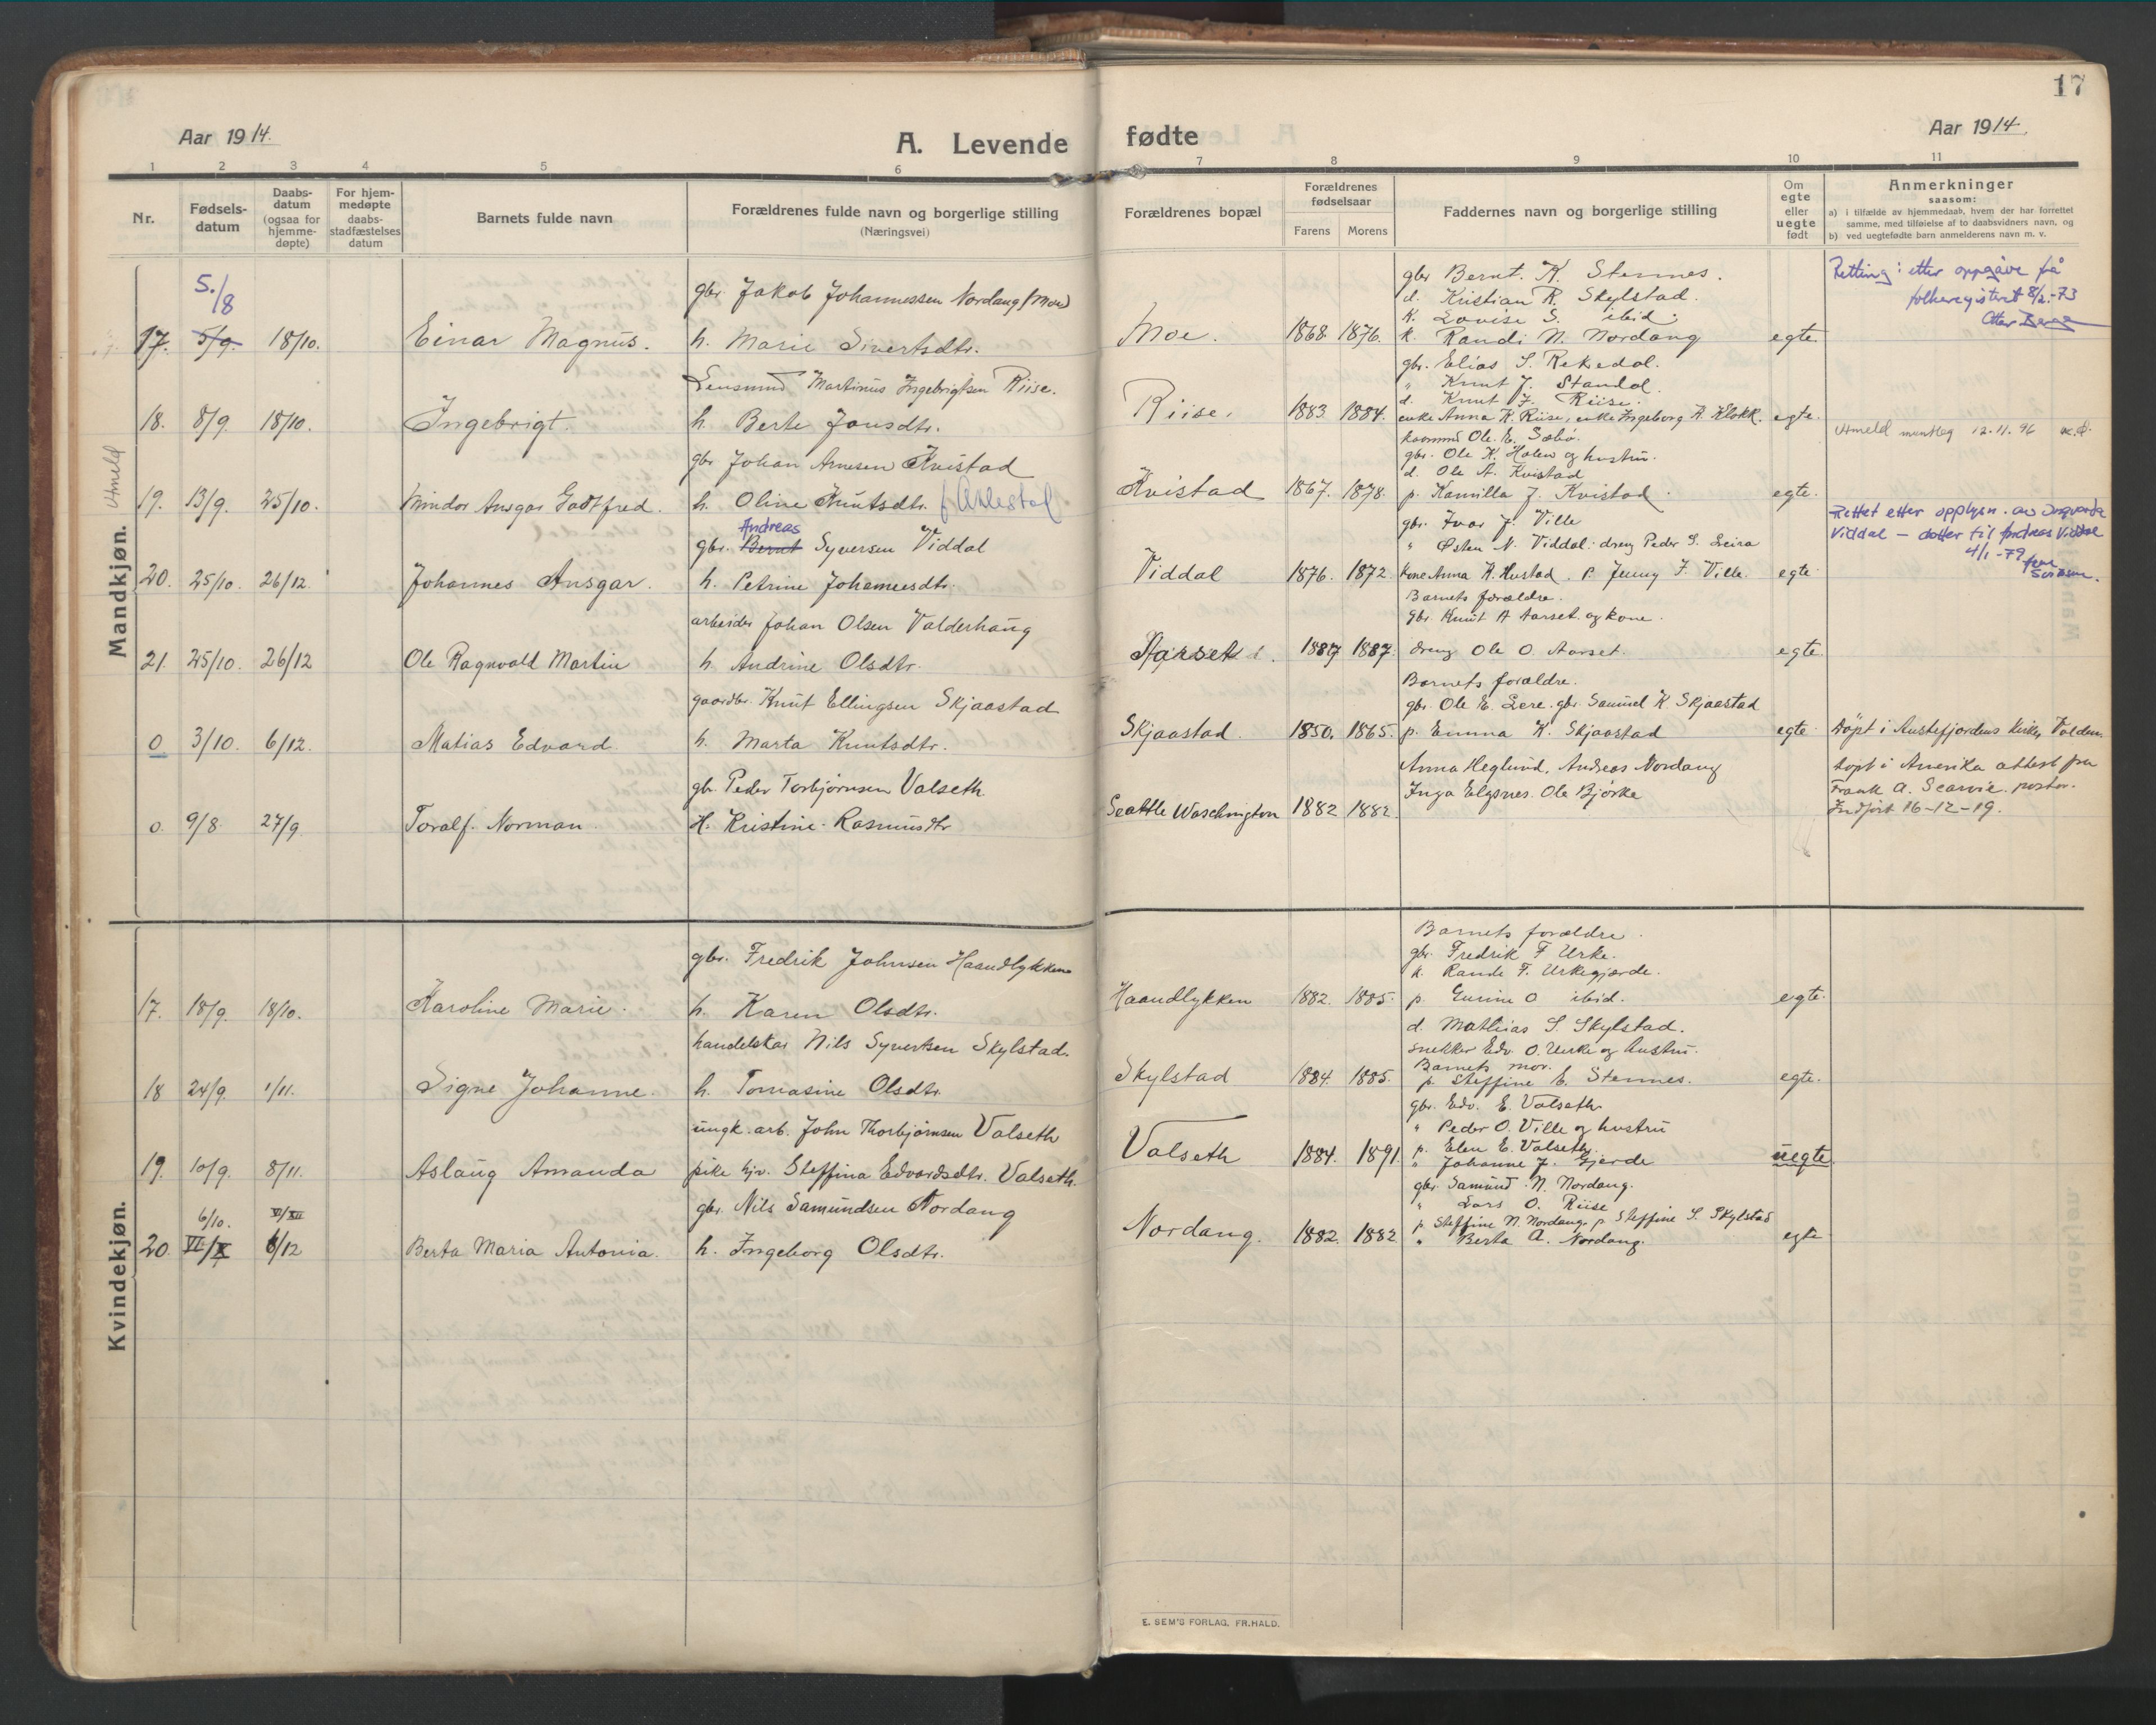 17
Aar 1914.
A. Levende
fødte
Aar 1914.
1 2 3 4 5 6 7 8 9 10 11
Nr.
Fødsels-
datum
Daabs-
datum
(ogsaa for
hjemme-
døpte)
For hjem-
medøpte
daabs-
stadfæstelses
datum
Barnets fulde navn
Forældrenes fulde navn og borgerlige stilling
(Næringsvei)
Forældrenes bopæl
Forældrenes
fødselsaar
Farens Morens
Faddernes navn og borgerlige stilling
Om
egte
eller
uegte
født
Anmerkninger
saasom:
a) i tilfælde av hjemmedaab, hvem der har forrettet
samme, med tilføielse af to daabsvidners navn, og
b) ved uegtefødte barn anmelderens navn m. v.
Mandkjøn.
Utmeld
5./8
17. 5/9. 18/10. Einar Magnus.
gbr. Jakob Johannessen Nordang (Moe)
h. Marie Sivertsdtr.
Moe. 1868 1876.
gbr Bernt. K. Stennes.
d. Kristian R. Skylstad.
k. Lovise S. ibid.
k. Randi N. Nordang
egte.
Retting: etter oppgåve frå
folkeregisteret 8/2.-73
18. 8/9. 18/10. Ingebrigt.
Lensmand Martinus Ingebrigtsen Riise.
h. Berte Jonsdtr.
Riise. 1883. 1884.
gbr. Elias S. Rekedal.
" Knut J. Standal.
d. Knut J. Riise.
enke Anna K. Riise, enke Ingeborg A. Klokk.
egte.
Utmeld 12.11.96
19. 13/9. 25/10. Mindor Ansgar Gottfred.
gbr Johan Arnesen Kvistad
h. Oline Knutsdtr.
Kvistad 1867. 1878.
Ole. E. Sæbø.
gbr. Ole K. Holen og hustru.
d. Ole A. Kvistad
p. Kamilla J. Kvistad.
egte.
20. 25/10. 26/12. Johannes Ansgar.
Andreas
gbr. Bernt Syversen Viddal
h. Petrine Johannesdtr.
Viddal 1876. 1872.
gbr. Ivar J. Ville
" Østen N. Viddal. dreng Peder S. Leira
kone Anna K. Hustad. p. Jenny I. Ville.
egte
Rettet etter opplysn. av Ingvarda
Viddal – dotter til Andreas Viddal
4/1-79
21. 25/10. 26/12 Ole Ragnvald Martin
arbeider Johan Olsen Valderhaug
h. Andrine Olsdtr.
Aarset 1887 1887.
Barnets forældre.
gbr Knut A Aarset og kone.
dreng Ole O. Aarset.
egte.
0 3/10. 6/12. Matias Edvard.
gaardbr. Knut Ellingsen Skjaastad
h. Marta Knutsdtr.
Skjaastad. 1850. 1865.
Barnets forældre.
gbr. Ole E. Lere. gbr. Samuel K. Skjaastad
p. Emma K. Skjaastad
egte
Døpt i Austefjordens kirke, Volden.
0. 9/8. 27/9. Toralf. Norman.
gbr. Peder Torbjørnsen Valseth
H. Kristine. Rasmusdtr
Seattle Waschington 1882 1882.
Anna Heglund, Andreas Nordang
Inga Elgsnes. Ole Bjørke
Døpt i Amerika attest fra
Frank A. Scarvie. pastor.
Indført 16-12-19.
Kvindekjøn.
17. 18/9. 18/10. Karoline Marie.
gbr. Fredrik Johnsen Haandlykken
h. Karen Olsdtr.
Haandlykken 1882. 1885.
Barnets forældre.
gbr. Fredrik F Urke.
k. Rande F. Urkegjærde.
p. Gurine O ibid.
egte.
18 24/9. 1/11. Signe Johanne.
handelskar Nils Syvertsen Skylstad.
h. Tomasine Olsdtr.
Skylstad 1884. 1885.
d. Mathias S. Skylstad.
snekker Edv. O. Urke og hustru.
Barnets mor.
p. Steffine E. Stennes.
egte.
19. 10/9. 8/11. Aslaug Amanda
ungk. arb. John Thorbjørnsen Valseth
pike hjv. Steffina Edvardsdtr. Valseth.
Valseth 1884. 1891.
gbr. Edv. E. Valseth
" Peder O. Ville og hustru
p. Elen E. Valseth
" Johanne J. Gjerde
uegte.
6/10. VI/XII
20. VI/X 6/12 Berta Maria Antonia.
gbr. Nils Samundsen Nordang
h. Ingeborg Olsdtr.
Nordang. 1882. 1882
gbr. Samund. N. Nordang.
" Lars O. Riise
p. Steffine N. Nordang, p Steffine S. Skylstad
" Berta A. Nordang.
egte
E. SEM'S FORLAG, FR.HALD.